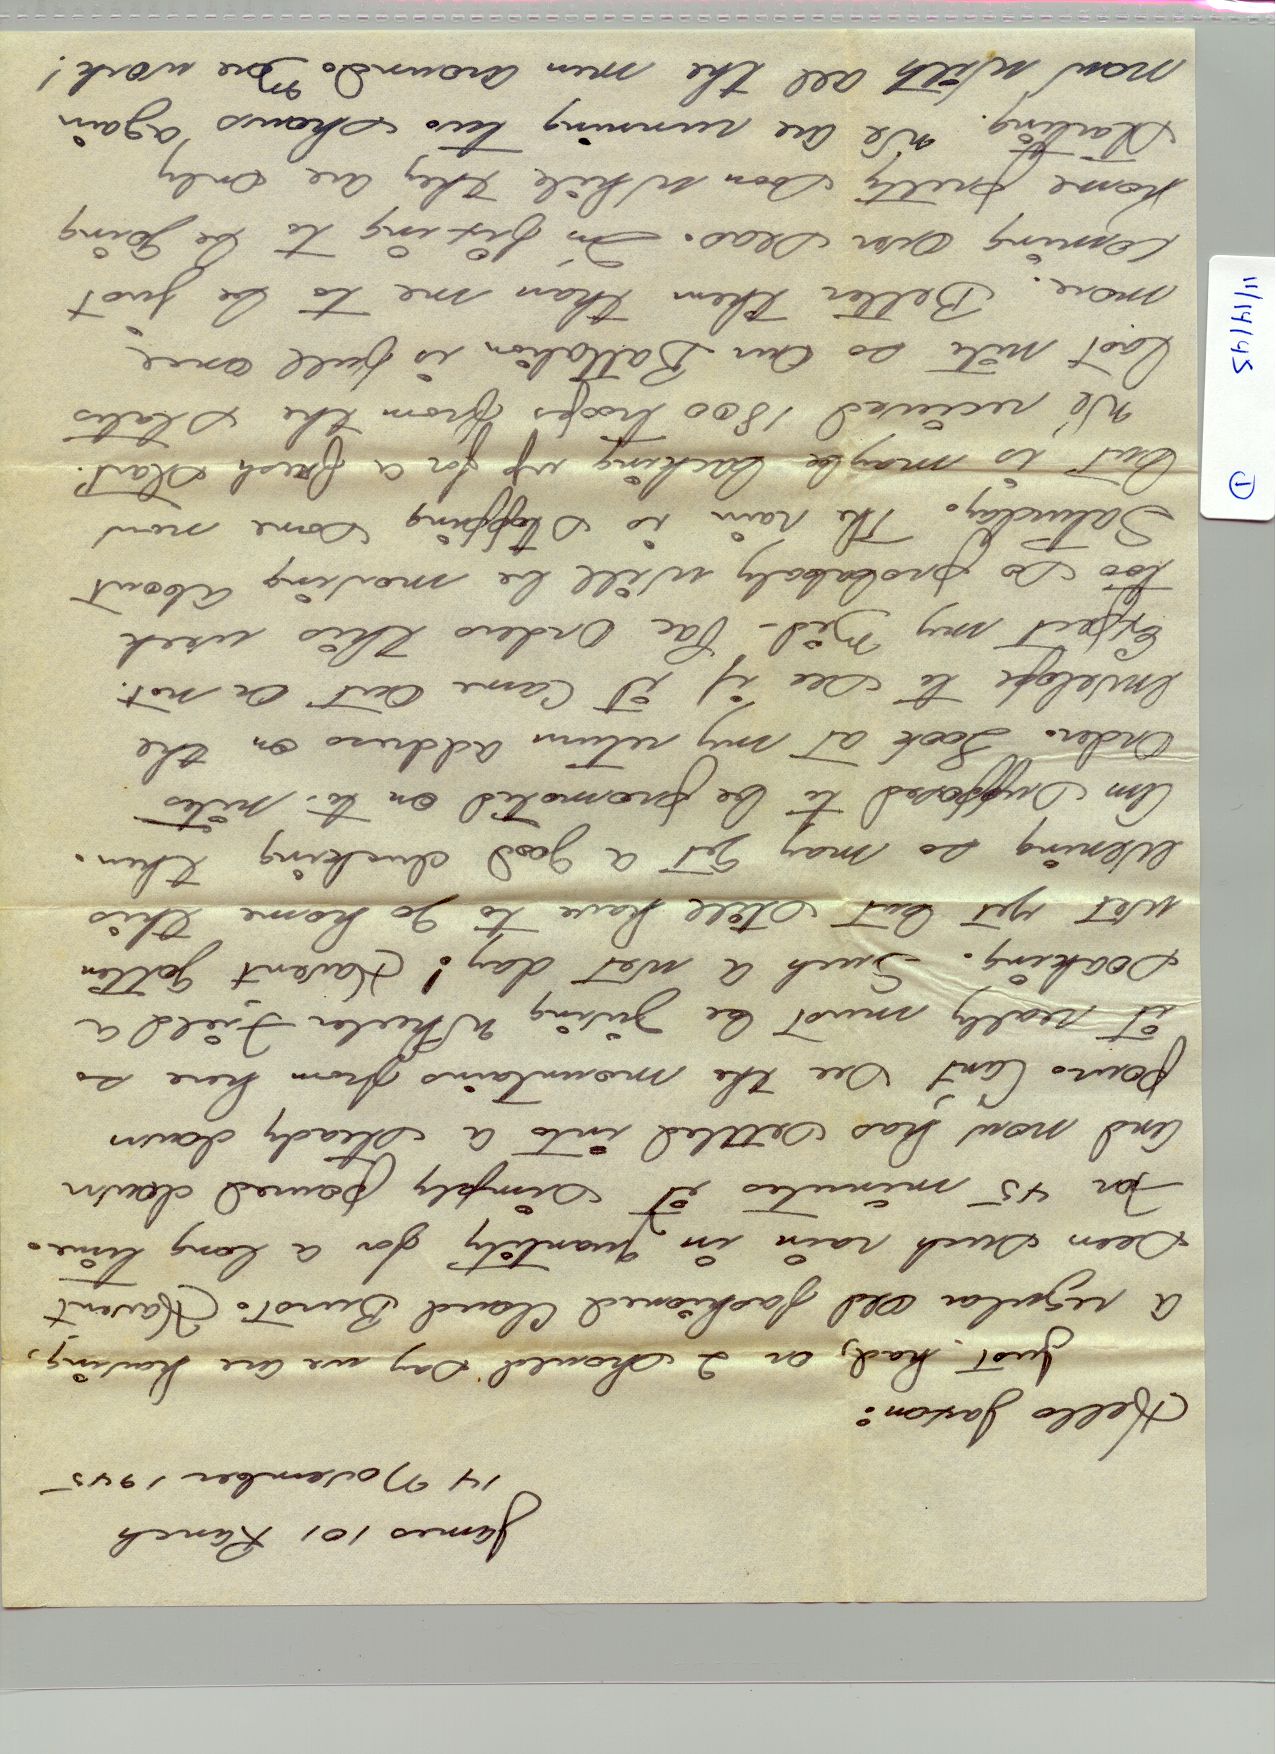 James 101 Ranch
14 November 1945
Hello Jaxon:
Just had, or I should say we are having,
a regular old fashioned Cloud Burst. Havent
seen such rain in quantity for a long time.
For 45 minutes it simply poured down
and now has settled into a steady down
pour. Can't see the mountains from here so
it really must be giving Wheeler Field a
soaking. Such a wet day! Havent gotten
wet yet but still have to go home this
evening so may get a good ducking then.
Am supposed to be promoted on to-nites
Order. Look at my return address on the
envelope to see if it came out or not.
Expect my Mid-Pac Orders this week
too so probabaly will be moving about
Saturday. The rain is stopping some now
but is maybe backing up for a fresh start.
We recieved 1800 troops from the States
last nite so our Battalion is full once
more. Better them than me to be just
coming over seas. I'm fixing to be going
home pretty soon while they are only
starting. We are running two shows again
now with all the men around. More work!
11/14/45
1